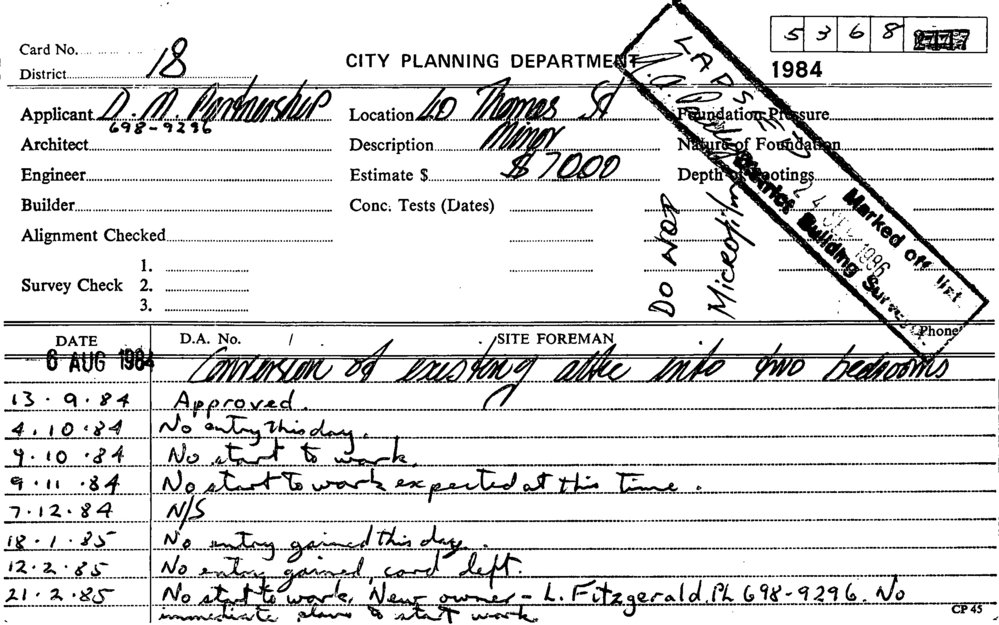 5 3 6 8
Card No. 18
CITY PLANNING DEPARTMENT
1984
District
Applicant D. M. Partnership
698-9296
Location Thomas St
Foundation Pressure
Architect
Description Minor
Nature of Foundation
Engineer
Estimate $ $7000
Depth of Footings
Builder
Conc. Tests (Dates)
Alignment Checked
Survey Check
1.
2.
3.
DO NOT
Microfilm
LAPSED
24 1986
Marked off list
District Building Surveyor
Phone
DATE D.A. No. / SITE FOREMAN
6 AUG 1984 Conversion of existing attic into two bedrooms
13.9.84 Approved.
4.10.84 No entry this day.
9.10.84 No start to work.
9.11.84 No start to work expected at this time.
7.12.84 N/S
18.1.85 No entry gained this day.
12.2.85 No entry gained card left.
21.2.85 No start to work. New owner - L. Fitzgerald. Ph 698-9296. No
immediate plans to start work.
CP 45